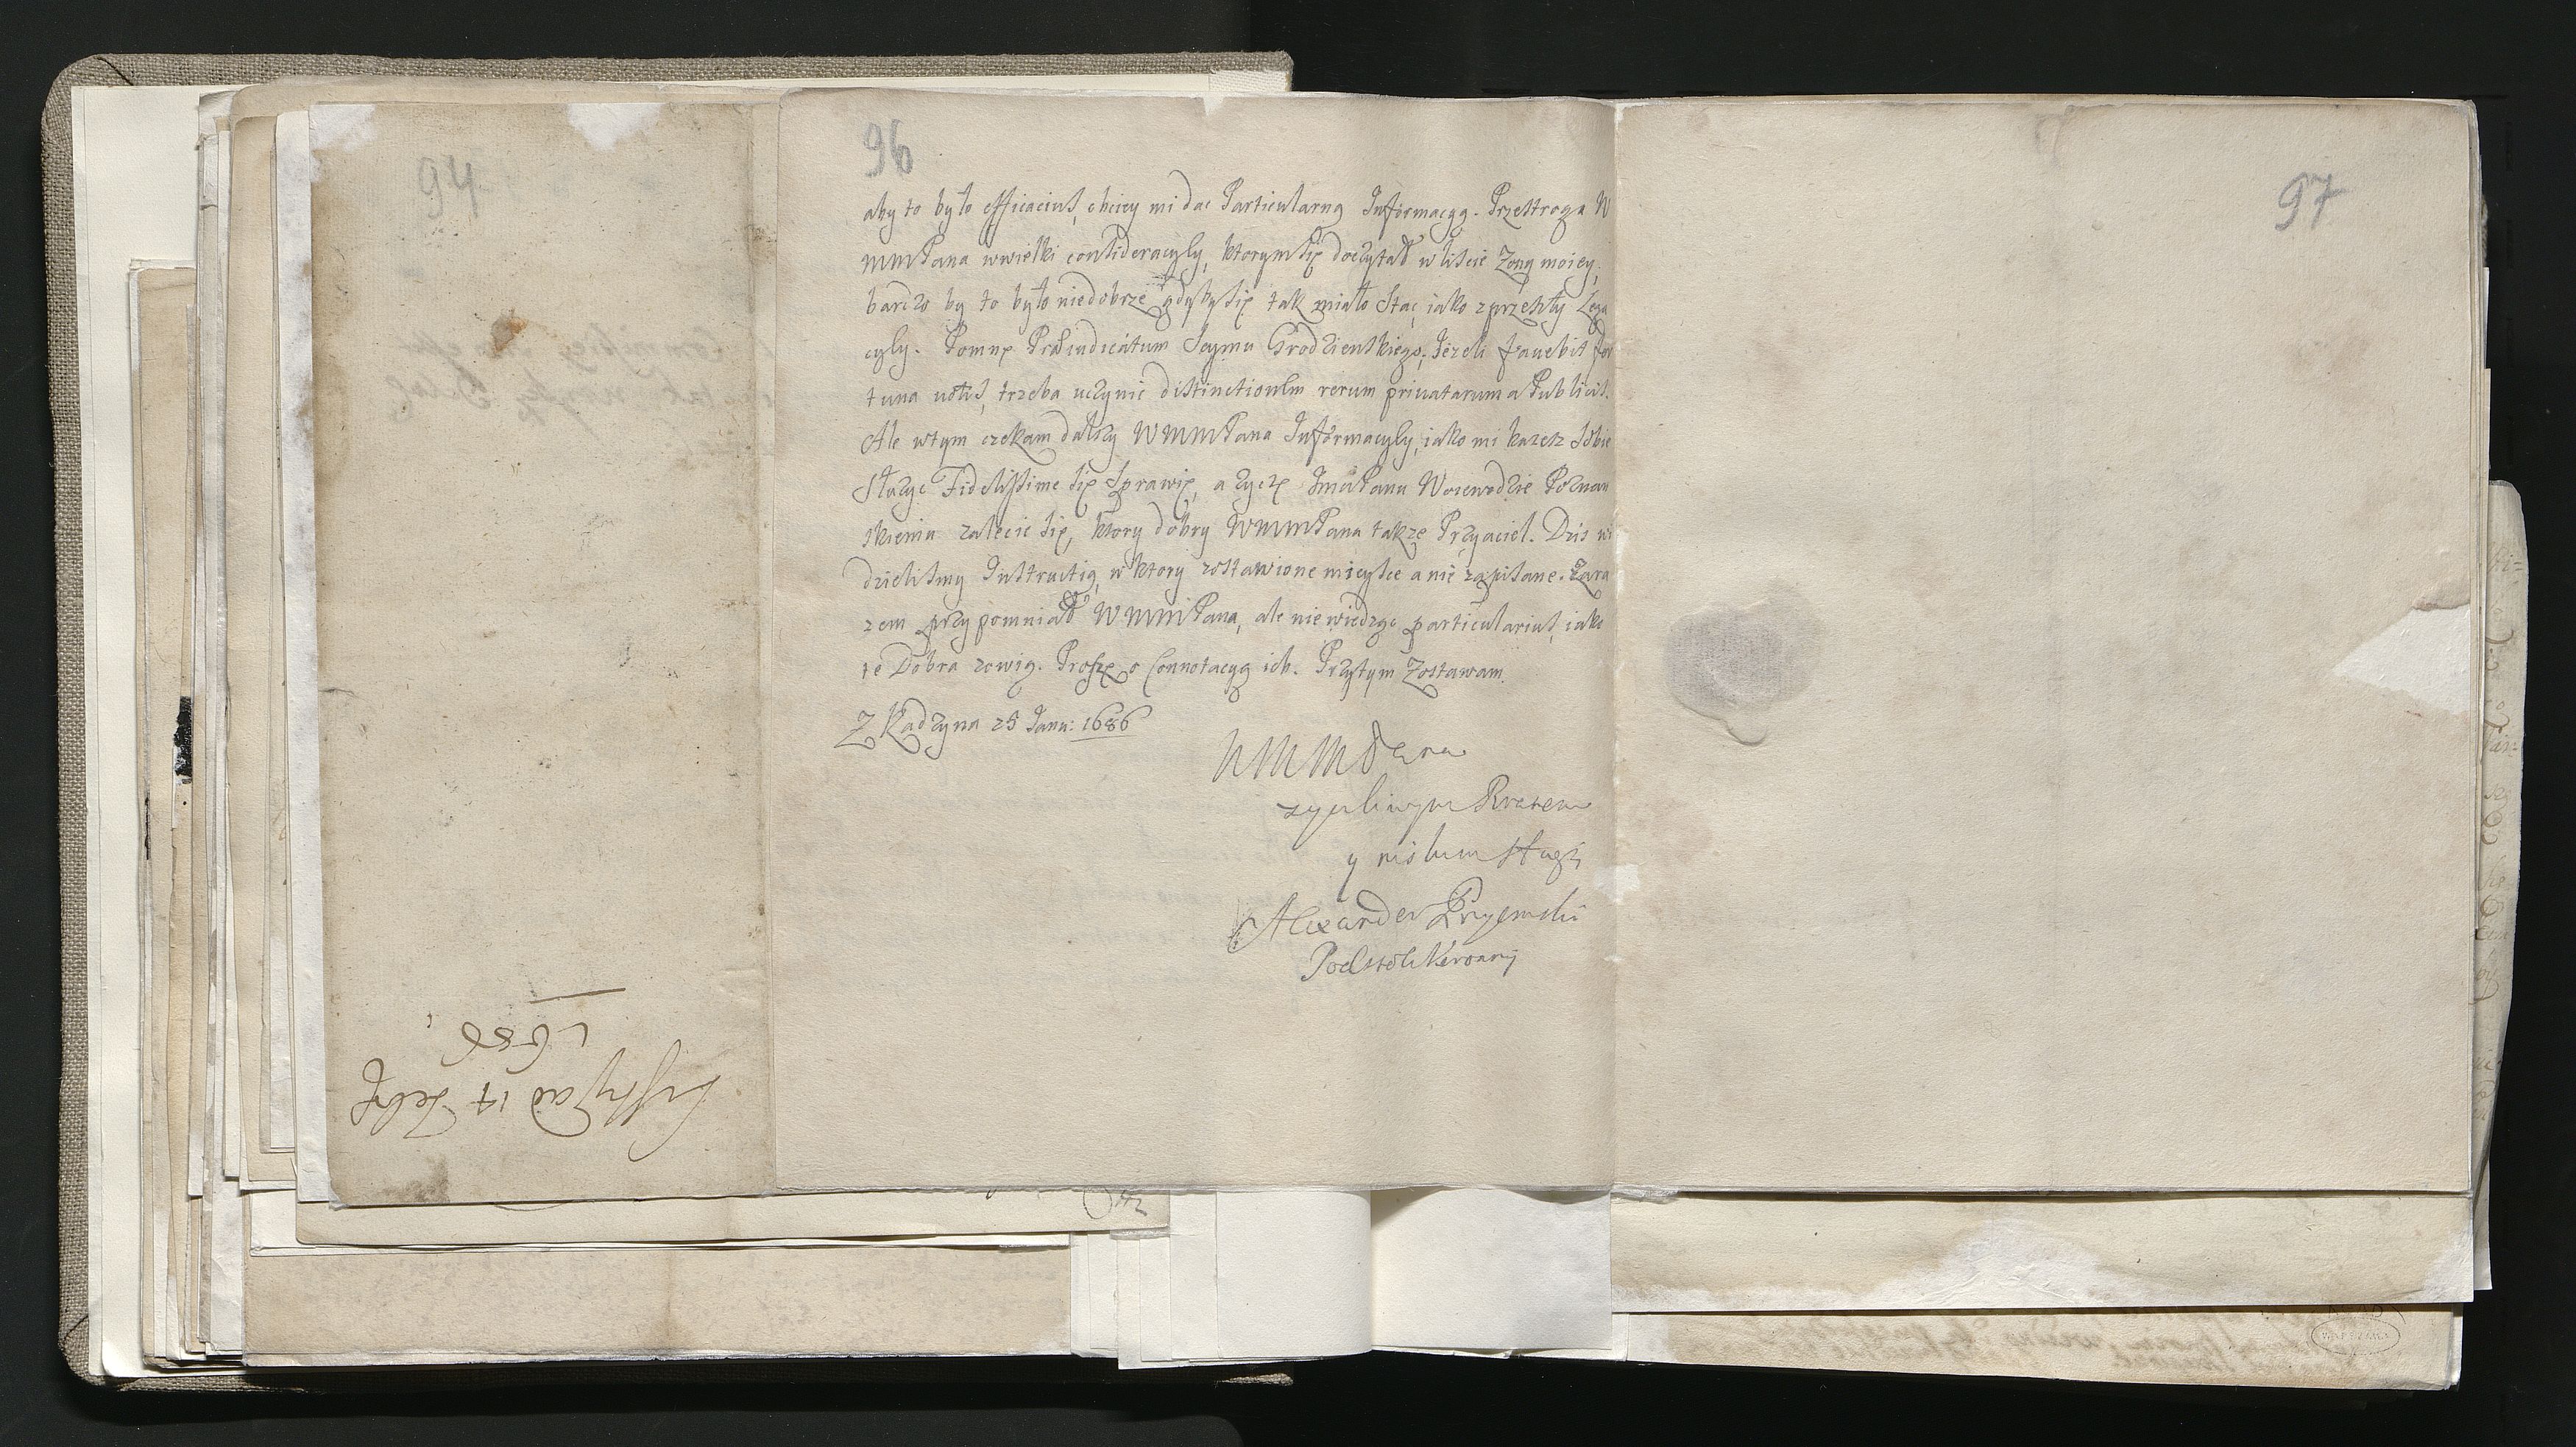 94
96
aby to było efficacius, chciey mi dac Particularną Informacyą. Przestroga W
MMPana wwielki consideracyĭy, ktorym się doczytał w liscie Zony moiey,
bardzo by to było niedobrze gdyby się tak miało stac, iako z przeszły Lega
cyĭy. Pomnę Præiudicatum Seymu Grodzienskiego; Jezeli fauebit for
tuna uotis, trzeba uczynic distinctionem rerum priuatarum a Publicis.
Ale wtym czekam dalszy WMMPana Informacyĭy, iako mi kazesz sobie
Słuzyc Fidelissime się sprawię, a zyczę ImćPanu Woiewodzie Poznan
skiemu zalecic się, ktory dobry WMMPana takze Przyaciel. Dzis wi
dzielismy Instructią, w ktory zostawione mieysce a nie zapisane. Zara
zem przypomniał WMMPana, ale niewiedząc particularius, iako
te Dobra zowią. Proszę o Connotacyą ich. Przytym Zostawam
Z Radzyna 25 Janu: 1686
WMMPana
zyczliwym Bratem
y niskim sługą
Alexander Przyiemski
Podstoli Koronny
97
Listy ad 14 Febr
1686